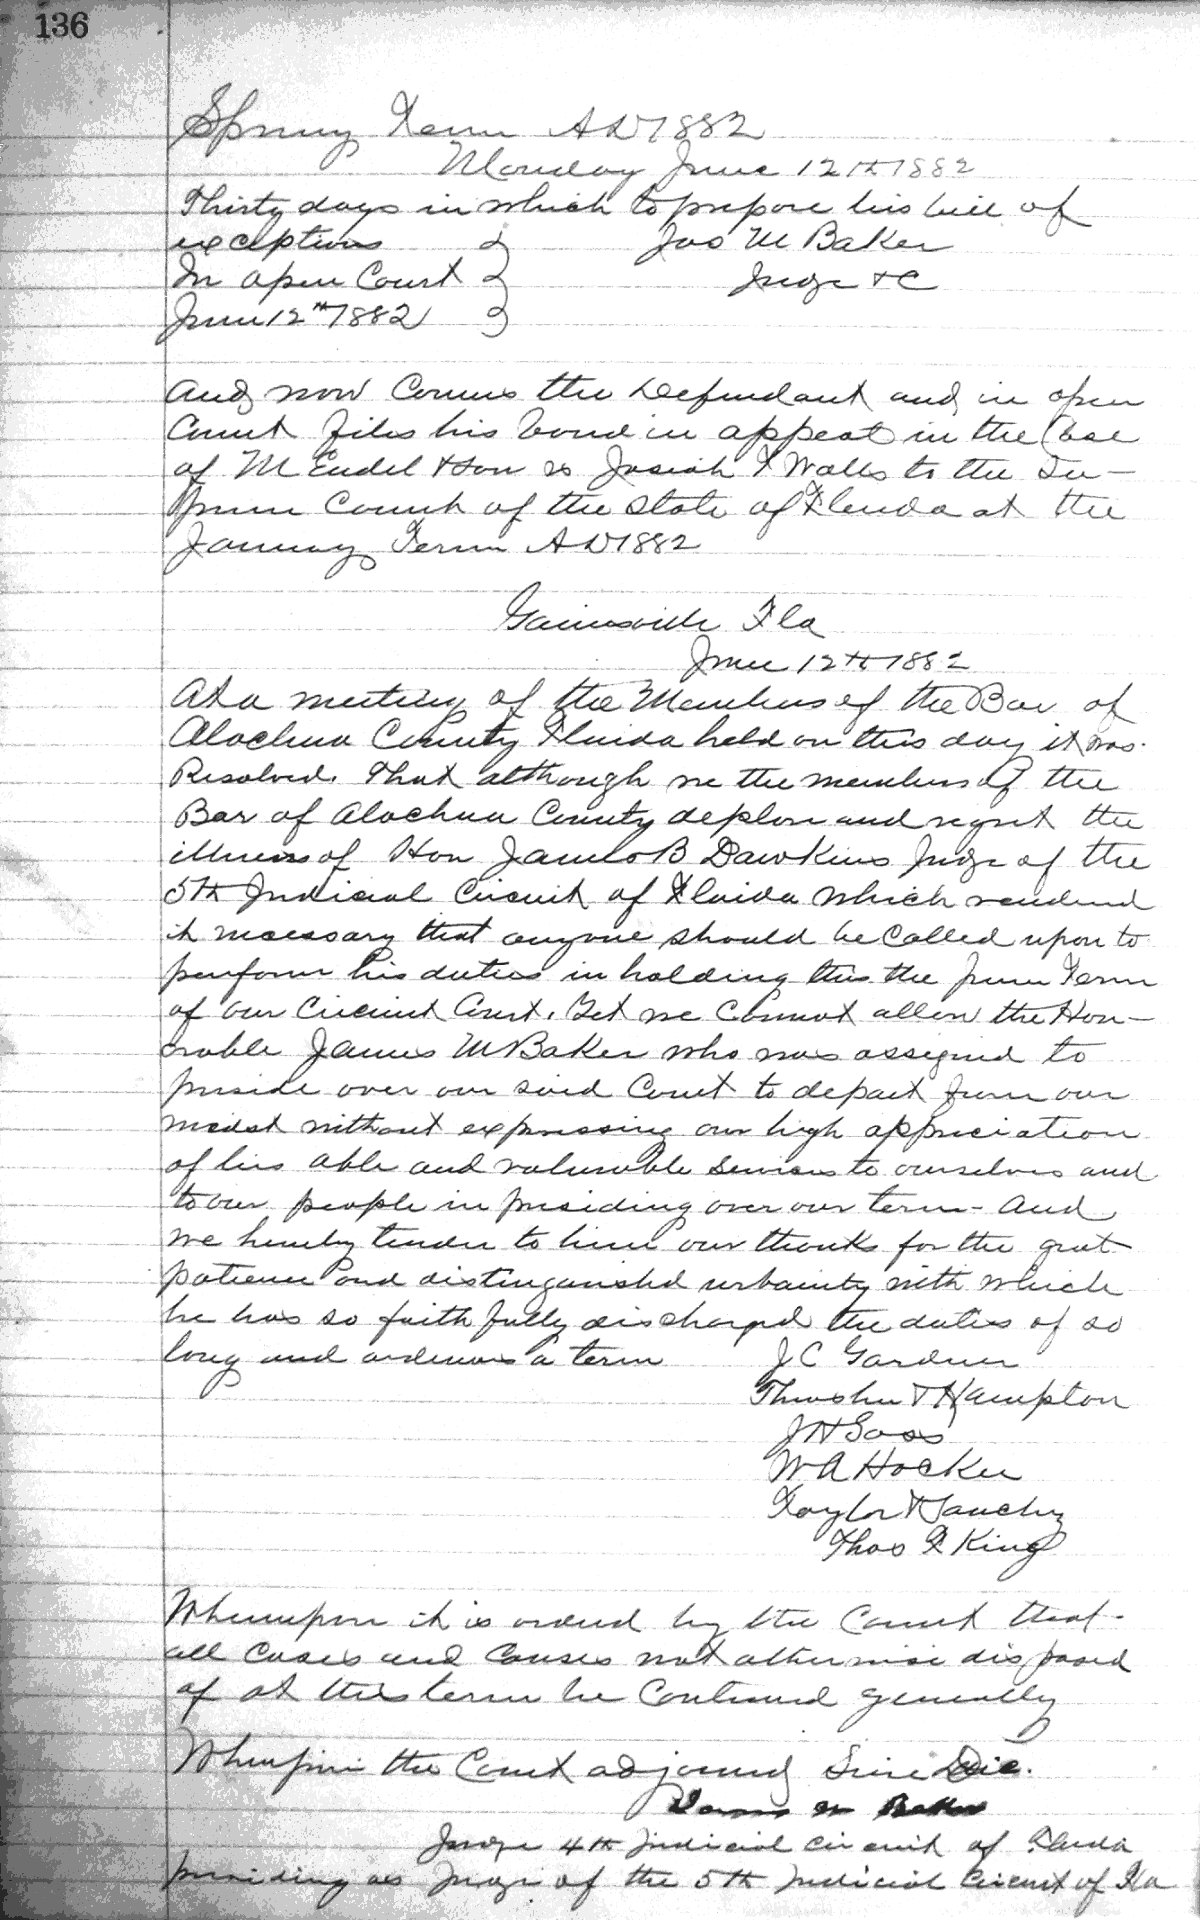 136
Spring Term AD 1882
Monday June 12th 1882
Thirty days in which to prepare his bill of
exceptions } Jas M Baker
In open Court } Judge &C
June 12th 1882 }
And now Comes the Defendant and in open
Court files his bond in appeal in the Case
of M Endel & Son vs Josiah T Walls to the Su-
preme Court of the State of Florida at the
January Term AD 1882
Gainesville Fla
June 12th 1882
At a meeting of the Members of the Bar of
Alachua County Florida held on this day it was.
Resolved. That although we the members of the
Bar of Alachua County deplore and regret the
illness of Hon James B Dawkins Judge of the
5th Judicial Circuit of Florida which rendered
it necessary that anyone should be called upon to
perform his duties in holding this the June Term
of our Circuit Court. Yet we Cannot allow the Hon-
orable James M Baker who was assigned to
preside over our said Court to depart from our
midst without expressing our high appreciation
of his able and valuable services to ourselves and
to our people in presiding over our term - and
we hereby tender to him our thanks for the great
patience and distinguished urbanity with which
he has so faithfully discharged the duties of so
long and arduous a term J C Gardner
Thrasher & Hampton
J H Goss
W A Hocker
Taylor & Sanchez
Thos F King
Whereupon it is ordered by the Court that
all Cases and Causes not otherwise disposed
of at this term be Continued generally
Whereupon the Court adjourned Sine Die.
James M Baker
Judge 4th Judicial Circuit of Florida
presiding as Judge of the 5th Judicial Circuit of Fla